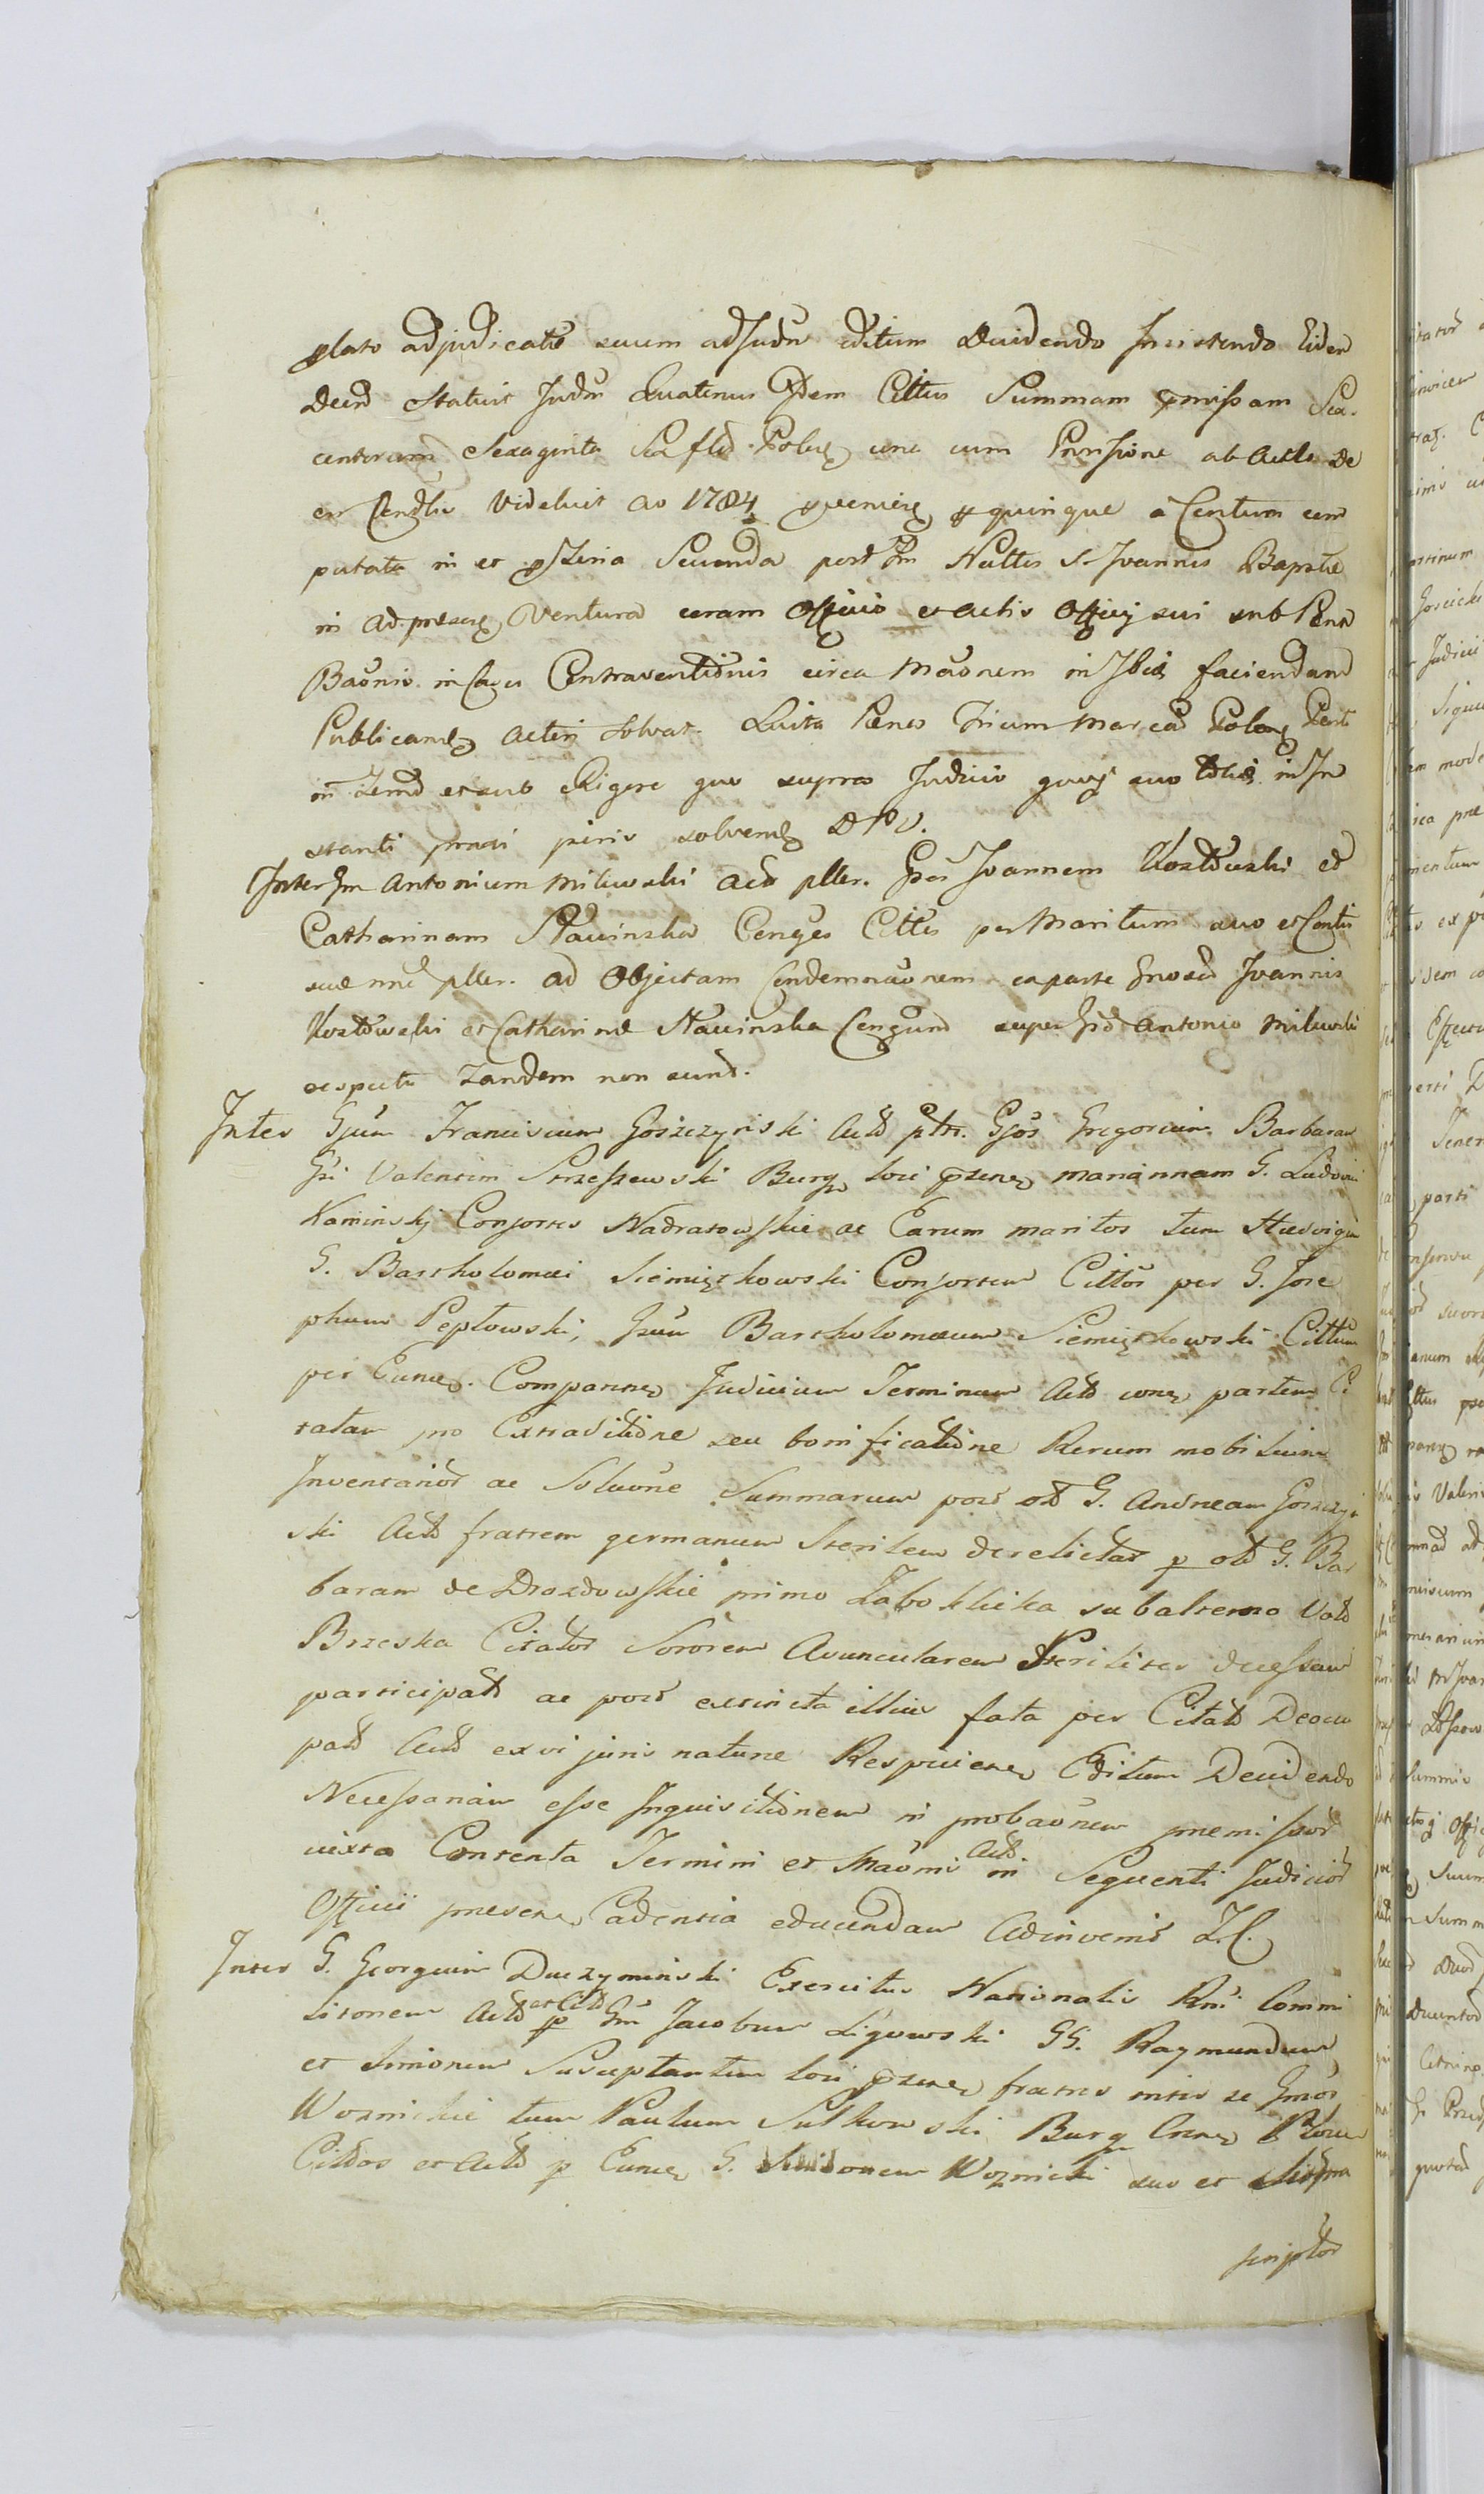 plato adjudicatis suum adJudm editum Decidendo Insistendo Eidem
Decd Statuit Judm Quatenus Idem Cittus Summam pmissam Sex
centorum Sexaginta Sex fld. Polon una cum Provisione ab Actu De
cr Condlis Videlicet ao 1784 pvenien p quinque a Centum com
putata in et Feria Secunda post Fm Nattis S. Joannis Baptae
in ad presens Ventura coram Officio et Actis Officij sui sub Pena
Baonis in Casu Contraventionis circa Maonem in Ibid faciendam
Publicand Acteri Solvat. Luita Penes Trium Marcad Polon Parti
in Temd et sub Rigore quo supra Judicio quoq suo in In
stanti praevi solvend D P V.
Inter Gm Antonium Milewski Actd pller. Gsos Joannem Kozłowski et
Catharinam Stawinska Conges Cittos per Maritum suo et Contis
sue nne pller. ad Objectam Condemnaonem ex parte Gnosd Joannis
Kozłowski et Catharinae Stawinska Congum super Gd Antonio Milewski
tandem non sunt.
Inter Gsum Franciscum Goszczynski Actd ptr. Gsos Gregorium Barbaram
Gsi Valentim Strzeszewski Burg loci psenes mariannam G. Ludovici
Kaminskj Consortes Nadratowskie ac Earum maritos tum Hedvigim
G. Bartholomaei Siemiątkowski Consortem Cittos per G. Jose
phum Pepłowski, Gsum Bartholomaeum Siemiątkowski Cittum
per Eund. Comparens Judicium Terminum Actd cones partem Ci
tatam pro Extraditione seu bonificatione Rerum mobilium
Inventarior ac Soluone Summarum post old G. Andream Goszczyn
ski Actd fratrem germanum Sterilem derelictas p old G. Bar
baram de Drozdowskie primo Zabokłicka subalterno Votd
Brzeska Citator Sororem Avuncularem Steriliter decessam
participatd ac post extincta illius fata per Citatd Deocu
patd Actd ex vi juris nature Respicienes Editum Decidendo
Necessariam esse Inquisitionem in probaonem premissor
iuxta Contenta Termini et Maonis Actd. in Sequenti Judicior
Officii presens Cadentia educendam Adinvenit L.C.
Inter G. Georgium Duczyminski Exercitus Nationalis Rni Commi
litonem Actd et Citd p Gm Jacobum Ligowski GG. Raymundum
et Simonem Susceptantem loci psenes fratres inter se Gnos
Woznickie tum Paulum Sulkowski Burg Crens
Cittos et Actd p Eund G. Simonem Woznicki suo et
scriptor